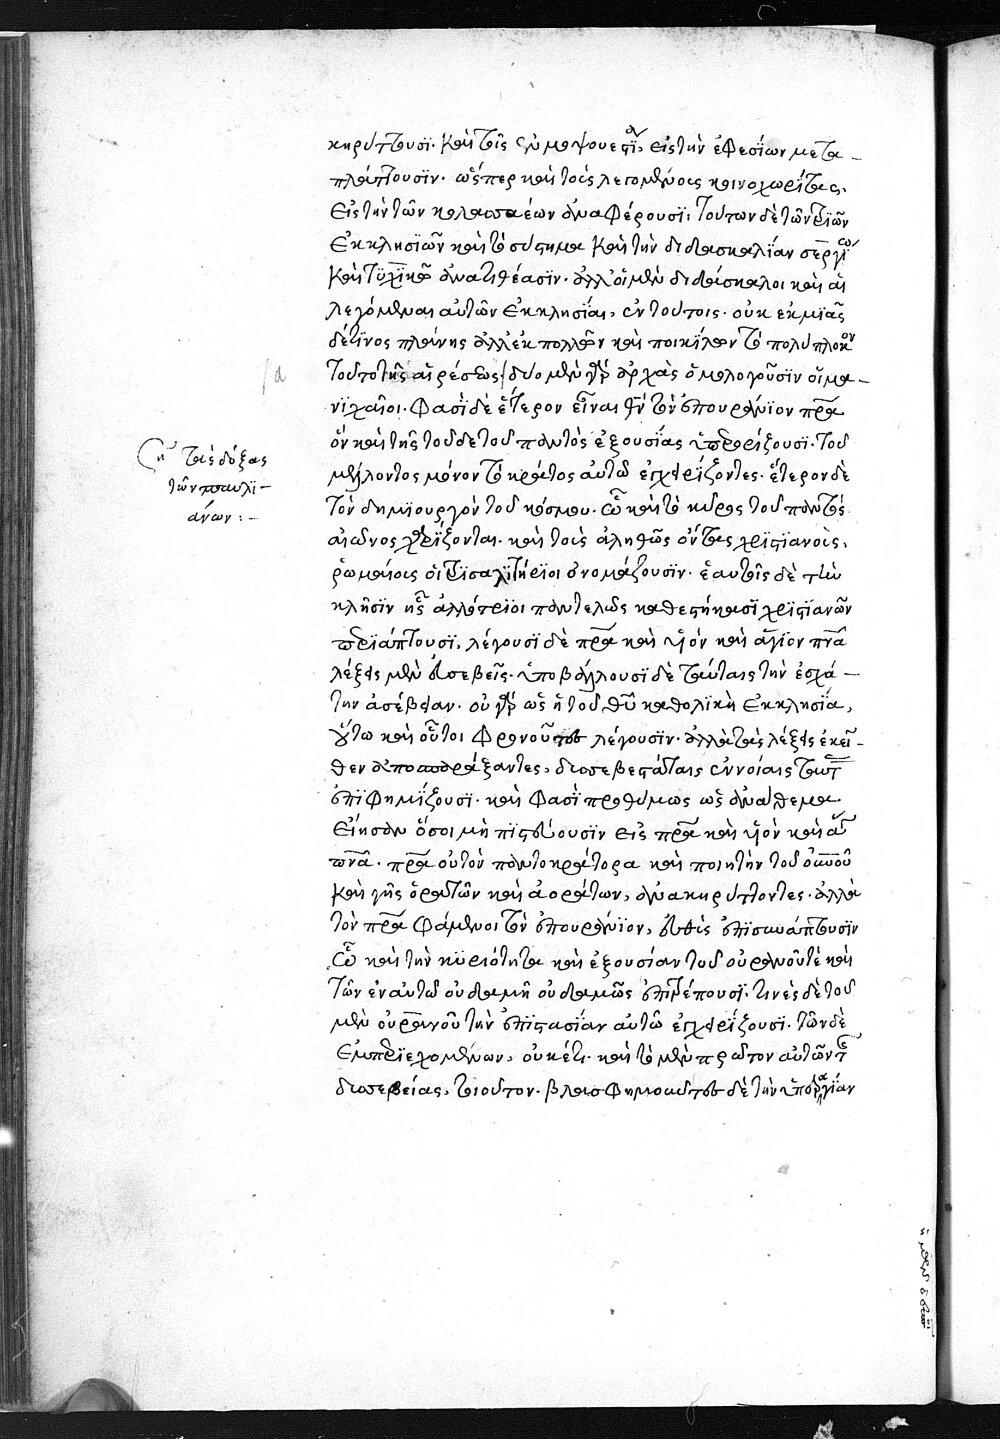 κηρύττουσϊ· καὶ τοῖς ἐν μομψουεστΐα, εἰς τὴν ἐφεσΐων μετα-
πλάττουσιν· ὥσπερ καὶ τοὺς λεγομένους κοινοχωρΐτας,
εἰς τὴν τῶν κολασσαέων ἀναφέρουσι· τούτων δὲ τῶν τριῶν
ἐκκλησιῶν καὶ τὸ σύστημα καὶ τὴν διδασκαλΐαν σεργΐω
καὶ ἀνατιθέασιν· ἀλλ' οἱ μὲν διδάσκαλοι καὶ αἱ
λεγόμεναι αὐτῶν ἐκκλησΐαι, ἐν τούτοις· οὐκ ἐκ μιᾶς
δέ τινος πλάνης ἀλλ' ἐκ πολλῶν καὶ ποικίλων τὸ πολύπλοκον
τοῦτο τῆς αἱρέσεως· δύο μὲν γὰρ ἀρχὰς ὁμολογοῦσϊν οἱ μα-
νϊχαῖοι· φασὶ δὲ ἕτερον εἶναι θν τὸν ἐπουράνϊον πρα
ὃν καὶ τῆς τοῦδε τοῦ παντὸς ἐξουσίας ὑπερορίζουσϊ· τοῦ
μέλλοντος μόνον τὸ κράτος αὐτῶ ἐγχειρΐζοντες· ἕτερον δὲ
τὸν δημϊουργὸν τοῦ κόσμου· ὧ καὶ τὸ κῦρος τοῦ παντὸς
αἰῶνος χαρΐζονται· καὶ τοὺς ἀληθῶς ὄντας χρϊστϊανοὺς,
ῥωμαίους οἱ τρϊσαλϊτήρϊοι ὀνομάζουσϊν· ἑαυτοῖς δὲ τὴν
κλῆσϊν ἧς ἀλλότρϊοι παντελῶς καθεστήκασϊ χρϊστϊανῶν
περϊάπτουσϊ, λέγουσϊ δὲ πρα καὶ υἱὸν καὶ ἅγϊον πνα
λέξεις μὲν εὐσεβεῖς· ὑποβάλλουσϊ δὲ ταύταις τὴν ἐσχά-
την ἀσέβειαν· οὐ γὰρ ὡς ἡ τοῦ θυ καθολϊκὴ ἐκκλησΐα,
οὕτω καὶ οὗτοι φρονοῦντες λέγουσϊν· ἀλλὰ τὰς λέξεις ἐκεῖ-
θεν ἀποσπαράξαντες, δυσσεβεστάταις ἐννοίαις ταύτας
ἐπϊφημΐζουσϊ· καὶ φασϊ προθύμως ὡς ἀνάθεμα
εἴησαν ὅσοι μὴ πϊστεύουσϊν εἰς πρα καὶ υἱὸν καὶ ἅγιον
πνα· πρα οὐ τὸν παντοκράτορα καὶ ποιητὴν τοῦ ουνου
καὶ γῆς ὁρατῶν καὶ ἀοράτων, ἀνακηρύττοντες· ἀλλὰ
τὸν πρα φάμενοι τὸν ἐπουράνϊον, εὐθὺς ἐπϊσυνάπτουσϊν
ὧ καὶ τὴν κϋριότητα καὶ ἐξουσίαν τοῦ οὐρανοῦ τὲ καὶ
τῶν ἐν αὐτῶ οὐδαμῆ οὐδαμῶς ἐπιτρέπουσϊ· τινὲς δὲ τοῦ
μὲν οὐρανοῦ τὴν ἐπϊστασΐαν αὐτῶ ἐγχειρΐζουσϊ· τῶν δὲ
ἐμπεριεχομένων, οὐκέτι· καὶ τὸ μὲν πρῶτον αὐτῶν τῆς
δυσσεβείας, τοιοῦτον· βλασφημοῦντες δὲ τὴν ὑπεραγΐαν
ση τὰς δόξας
τῶν παυλι-
άνων:-